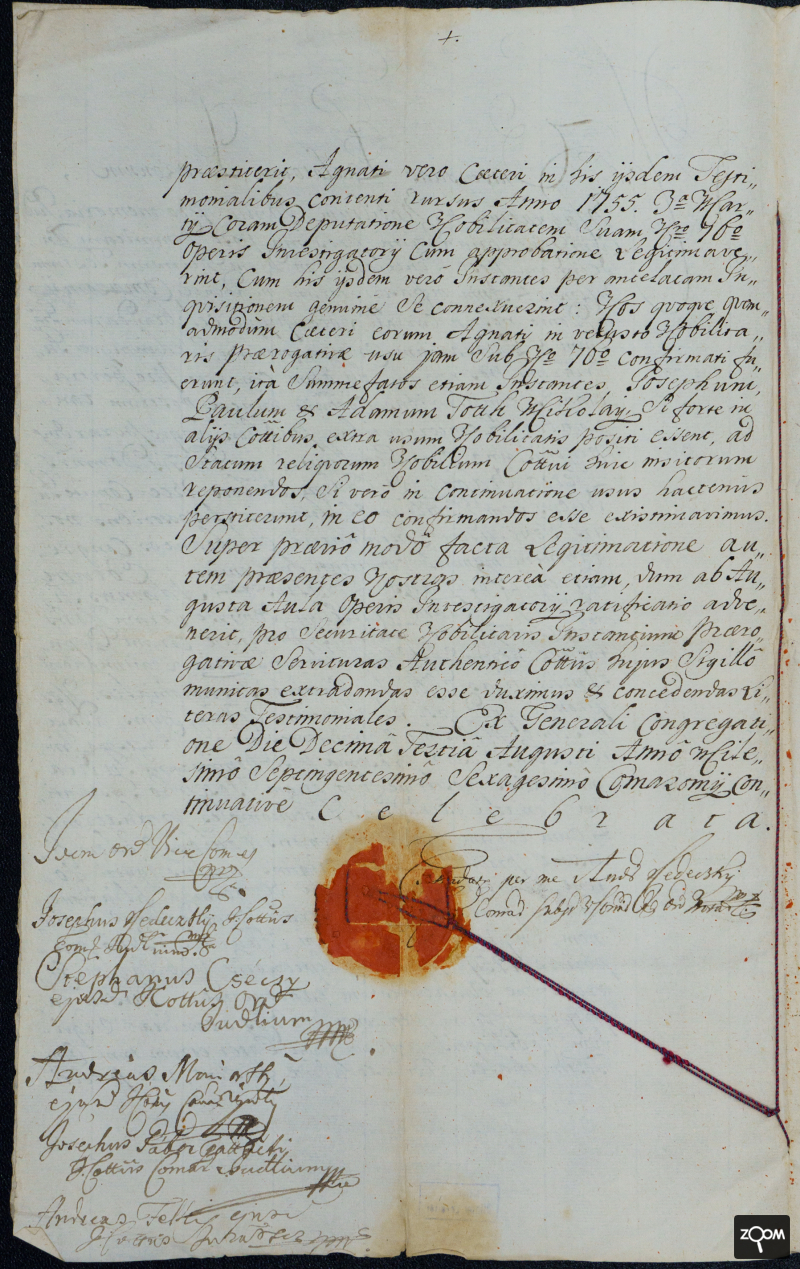 +.
præstiterit, Agnati vero Cæteri in his ijsdem Testi„
monialibus contenti rursus Anno 1755. 3ª Mar„
tij Coram Deputatione Nobilitatem Suam Nro 76º
Operis Investigatorij Cum approbatione Legitimave„
rint, Cum his ijsdem verò Instantes per antelatam In„
qvisitionem genuine Se connexuerint: Hos qvoqve qvem„
admodum Cæteri eorum Agnati in vetusto Nobilita„
ris Prærogativæ usu jam Sub Nº 70º confirmati fu„
erunt, ità Summefatos etiam Instantes, Josephum,
Paulum & Adamum Toth Mikolay, Si forte in
alijs Cottibus extra usum Nobilitatis positi essent, ad
Statum reliqvorum Nobilium Cottui huic insitorum
reponendos, Si verò in Continuatione usus hactenus
perstiterunt, in eo confirmandos esse existimavimus.
Super præviô modô facta Legitimatione au„
tem præsentes Nostras intereà etiam, dum ab Au„
gusta Aula Operis Investigatorij ratificatio adve„
nerit, pro Securitate Nobilitaris Instantium Præro„
gativæ Servituras Authenticô Cottûs hujus Sigillô
munitas extradandas esse duximus & concedendas Li„
teras Testimoniales. Ex Generali Congregati„
one Die Decimâ Tertiâ Augusti Annô Mille„
simô Septingentesimô Sexagesimô Comaromij Con„
tinuativè C e l e b r a t a.
Idem Ord Vice Comes
per me And
Josephus
Stephanus Cséczy
ejusd Cottus Ord
Judlium
Andreas
ejusd
Josephus
Cottus Comar Judlium
Andreas ejusd
ZOOM